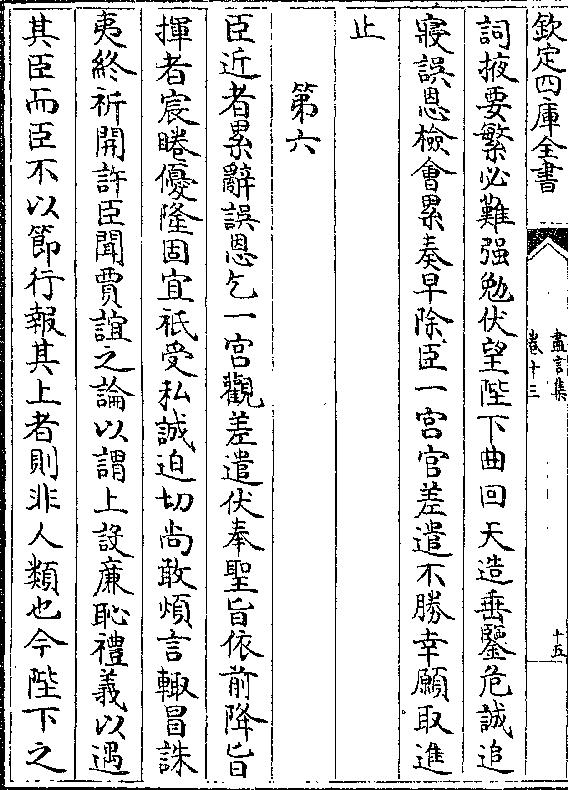 欽定四庫全書
盡言集
卷十三
十五
詞掖要繁必難强勉伏望陛下曲回天造垂鑒危誠追
寢誤恩檢會累奏早除臣一宮官差遣不勝幸願取進
止
第六
臣近者累辭誤恩乞一宮觀差遣伏奉聖旨依前降旨
揮者宸睠優隆固宜祇受私誠迫切尚敢煩言輙冒誅
夷終祈開許臣聞賈誼之論以謂上設廉恥禮義以遇
其臣而臣不以節行報其上者則非人類也今陛下之